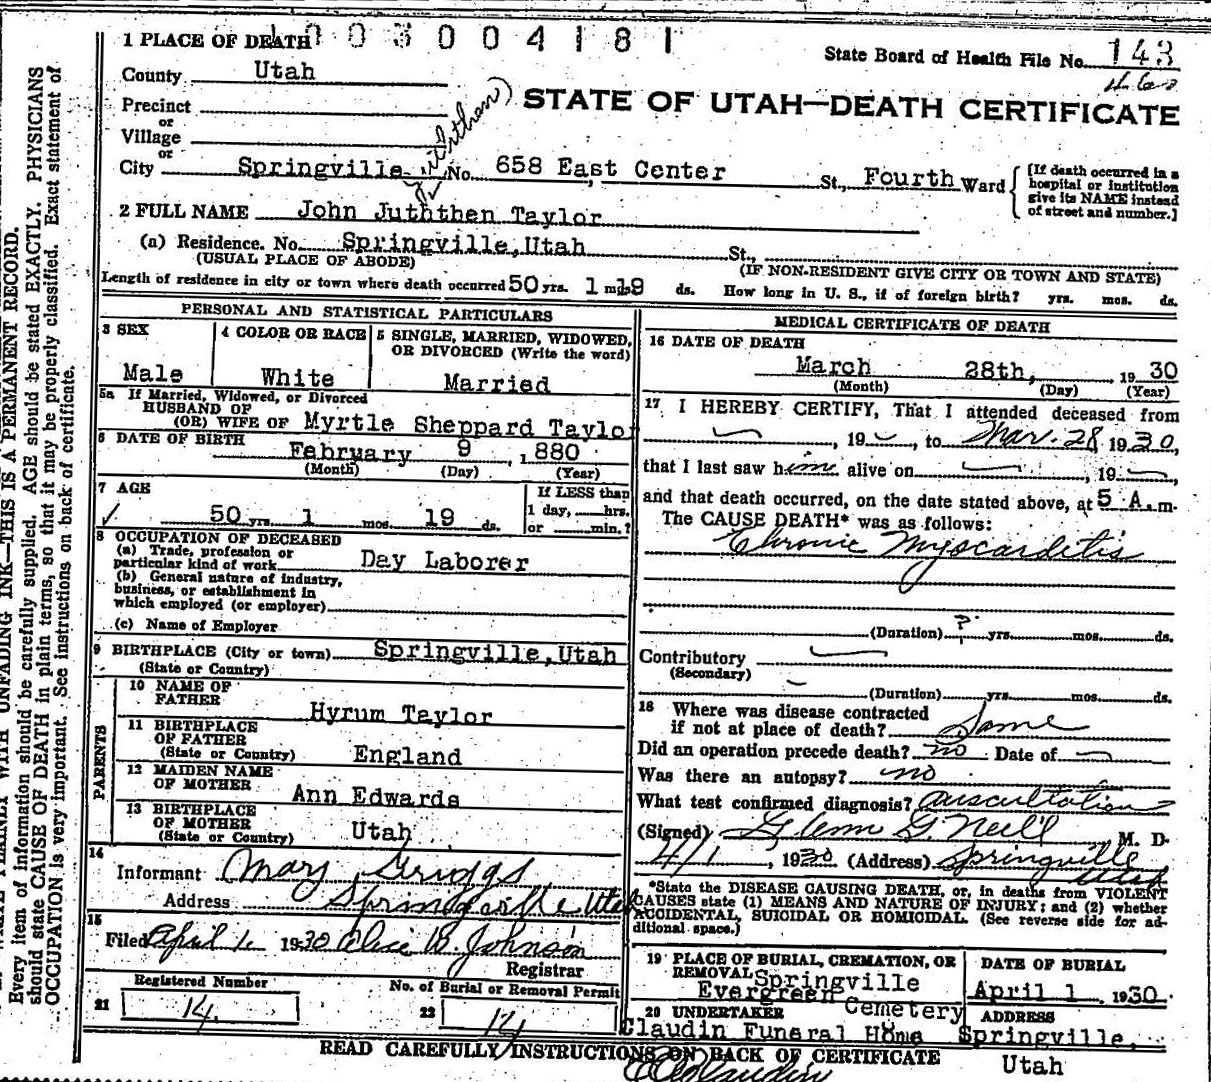 1 PLACE OF DEATH 003004181
State Board of Health File No. 143
460
County Utah
STATE OF UTAH—DEATH CERTIFICATE
Precinct
or
Village
or
City Springville No. 658 East Center St., Fourth Ward
[If death occurred in a
hospital or institution
give its NAME instead
of street and number.]
2 FULL NAME John Juththen Taylor
(a) Residence. No. Springville, Utah St.,
(USUAL PLACE OF ABODE) (IF NON-RESIDENT GIVE CITY OR TOWN AND STATE)
Length of residence in city or town where death occurred 50 yrs. 1 mos. 19 ds. How long in U. S., if of foreign birth? yrs. mos. ds.
PERSONAL AND STATISTICAL PARTICULARS
3 SEX
Male
4 COLOR OR RACE
White
5 SINGLE, MARRIED, WIDOWED,
OR DIVORCED (Write the word)
Married
5a If Married, Widowed, or Divorced
HUSBAND OF
(OR) WIFE OF Myrtle Sheppard Taylor
6 DATE OF BIRTH
February 9, 1880
(Month) (Day) (Year)
7 AGE
50 yrs. 1 mos. 19 ds.
If LESS than
1 day, hrs.
or min.?
8 OCCUPATION OF DECEASED
(a) Trade, profession or
particular kind of work Day Laborer
(b) General nature of industry,
business, or establishment in
which employed (or employer)
(c) Name of Employer
9 BIRTHPLACE (City or town) Springville, Utah
(State or Country)
PARENTS
10 NAME OF
FATHER
Hyrum Taylor
11 BIRTHPLACE
OF FATHER
(State or Country) England
12 MAIDEN NAME
OF MOTHER
Ann Edwards
13 BIRTHPLACE
OF MOTHER
(State or Country) Utah
14
Informant Mary Griggs
Address Springville Utah
15
Filed April 1, 1930 Alice B. Johnson
Registrar
Registered Number
21 14
No. of Burial or Removal Permit
22 14
MEDICAL CERTIFICATE OF DEATH
16 DATE OF DEATH
March 28th, 1930
(Month) (Day) (Year)
17 I HEREBY CERTIFY, That I attended deceased from
, 19 , to Mar. 28, 1930,
that I last saw him alive on , 19
and that death occurred, on the date stated above, at 5 A.m.
The CAUSE DEATH* was as follows:
Chronic Myocarditis
(Duration) ? yrs. mos. ds.
Contributory
(Secondary)
(Duration) yrs. mos. ds.
18 Where was disease contracted
if not at place of death? Same
Did an operation precede death? no Date of
Was there an autopsy? no
What test confirmed diagnosis? Auscultation
(Signed) Glenn G. Neill M. D.
4/1, 1930 (Address) Springville
Utah
*State the DISEASE CAUSING DEATH, or, in deaths from VIOLENT
CAUSES state (1) MEANS AND NATURE OF INJURY; and (2) whether
ACCIDENTAL, SUICIDAL OR HOMICIDAL. (See reverse side for ad-
ditional space.)
19 PLACE OF BURIAL, CREMATION, OR
REMOVAL Springville
Evergreen Cemetery
DATE OF BURIAL
April 1, 1930
20 UNDERTAKER
Claudin Funeral Home
ADDRESS
Springville,
Utah
READ CAREFULLY INSTRUCTIONS ON BACK OF CERTIFICATE
WRITE PLAINLY WITH UNFADING INK—THIS IS A PERMANENT RECORD.
Every item of information should be carefully supplied. AGE should be stated EXACTLY. PHYSICIANS
should state CAUSE OF DEATH in plain terms, so that it may be properly classified. Exact statement of
OCCUPATION is very important. See instructions on back of certificate.